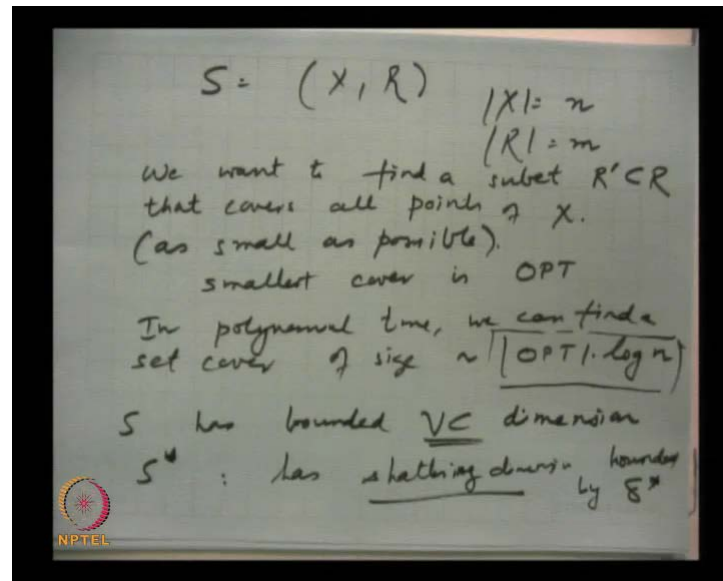 S = (X, R)
|X| = n
|R| = m
We want to find a subset R' ⊂ R
that covers all points of X.
(as small as possible).
smallest cover is OPT
In polynomial time, we can find a
set cover of size ~ |OPT|. log n
S has bounded VC dimension
S* : has shattering dimension bounded
by δ*
NPTEL